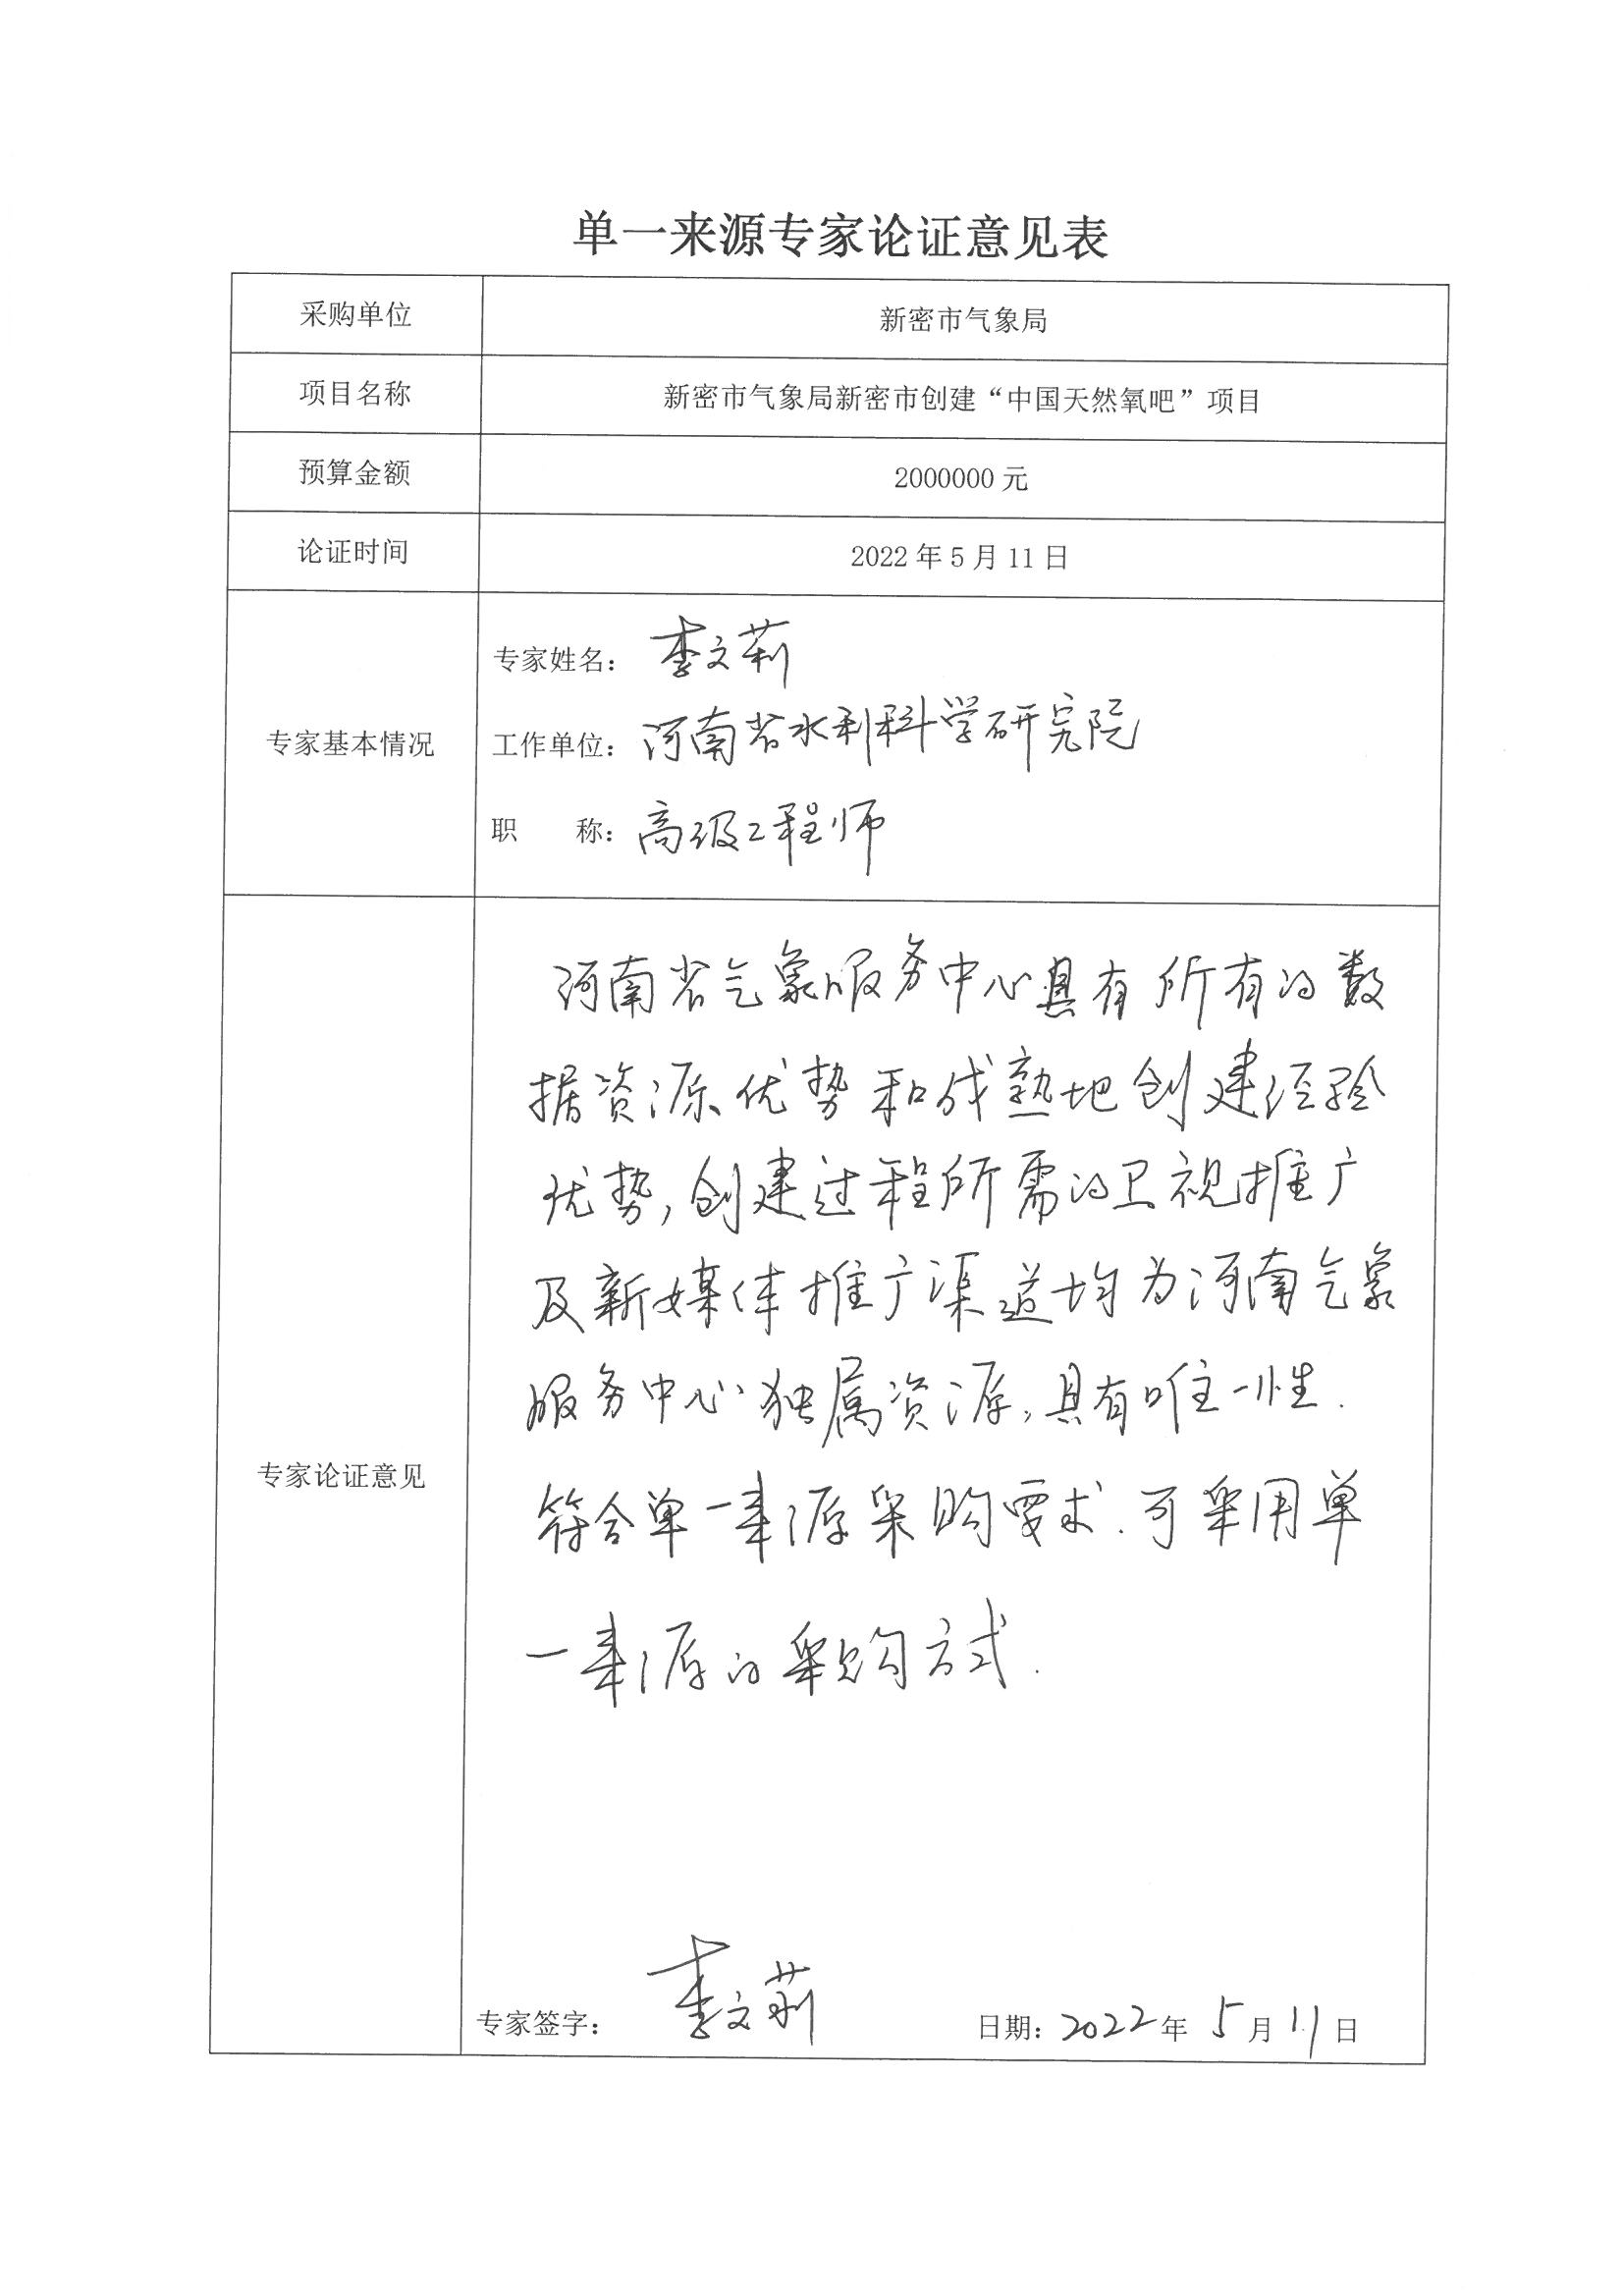 单一来源专家论证意见表
采购单位 新密市气象局
项目名称 新密市气象局新密市创建“中国天然氧吧”项目
预算金额 2000000 元
论证时间 2022 年 5 月 11 日
专家基本情况
专家姓名：李文莉
工作单位：河南省水利科学研究院
职 称：高级工程师
专家论证意见
河南省气象服务中心具有所有的数
据资源优势和成熟地创建经验
优势，创建过程所需的卫视推广
及新媒体推广渠道均为河南气象
服务中心独属资源，具有唯一性.
符合单一来源采购要求.可采用单
一来源的采购方式.
专家签字：李文莉 日期：2022 年 5 月 11 日